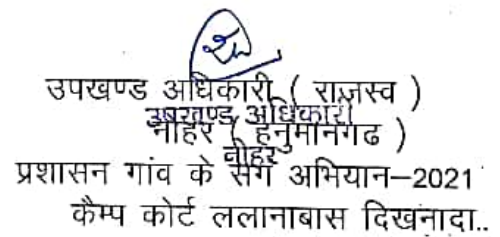 उपखण्ड अधिकारी ( राजस्व )
उपखण्ड अधिकारी
नोहर ( हनुमानगढ )
नोहर
प्रशासन गांव के संग अभियान–2021
कैम्प कोर्ट ललानाबास दिखनादा..